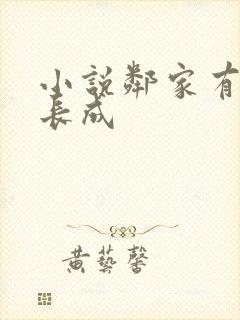 小説鄰家有
長成
黄藝馨